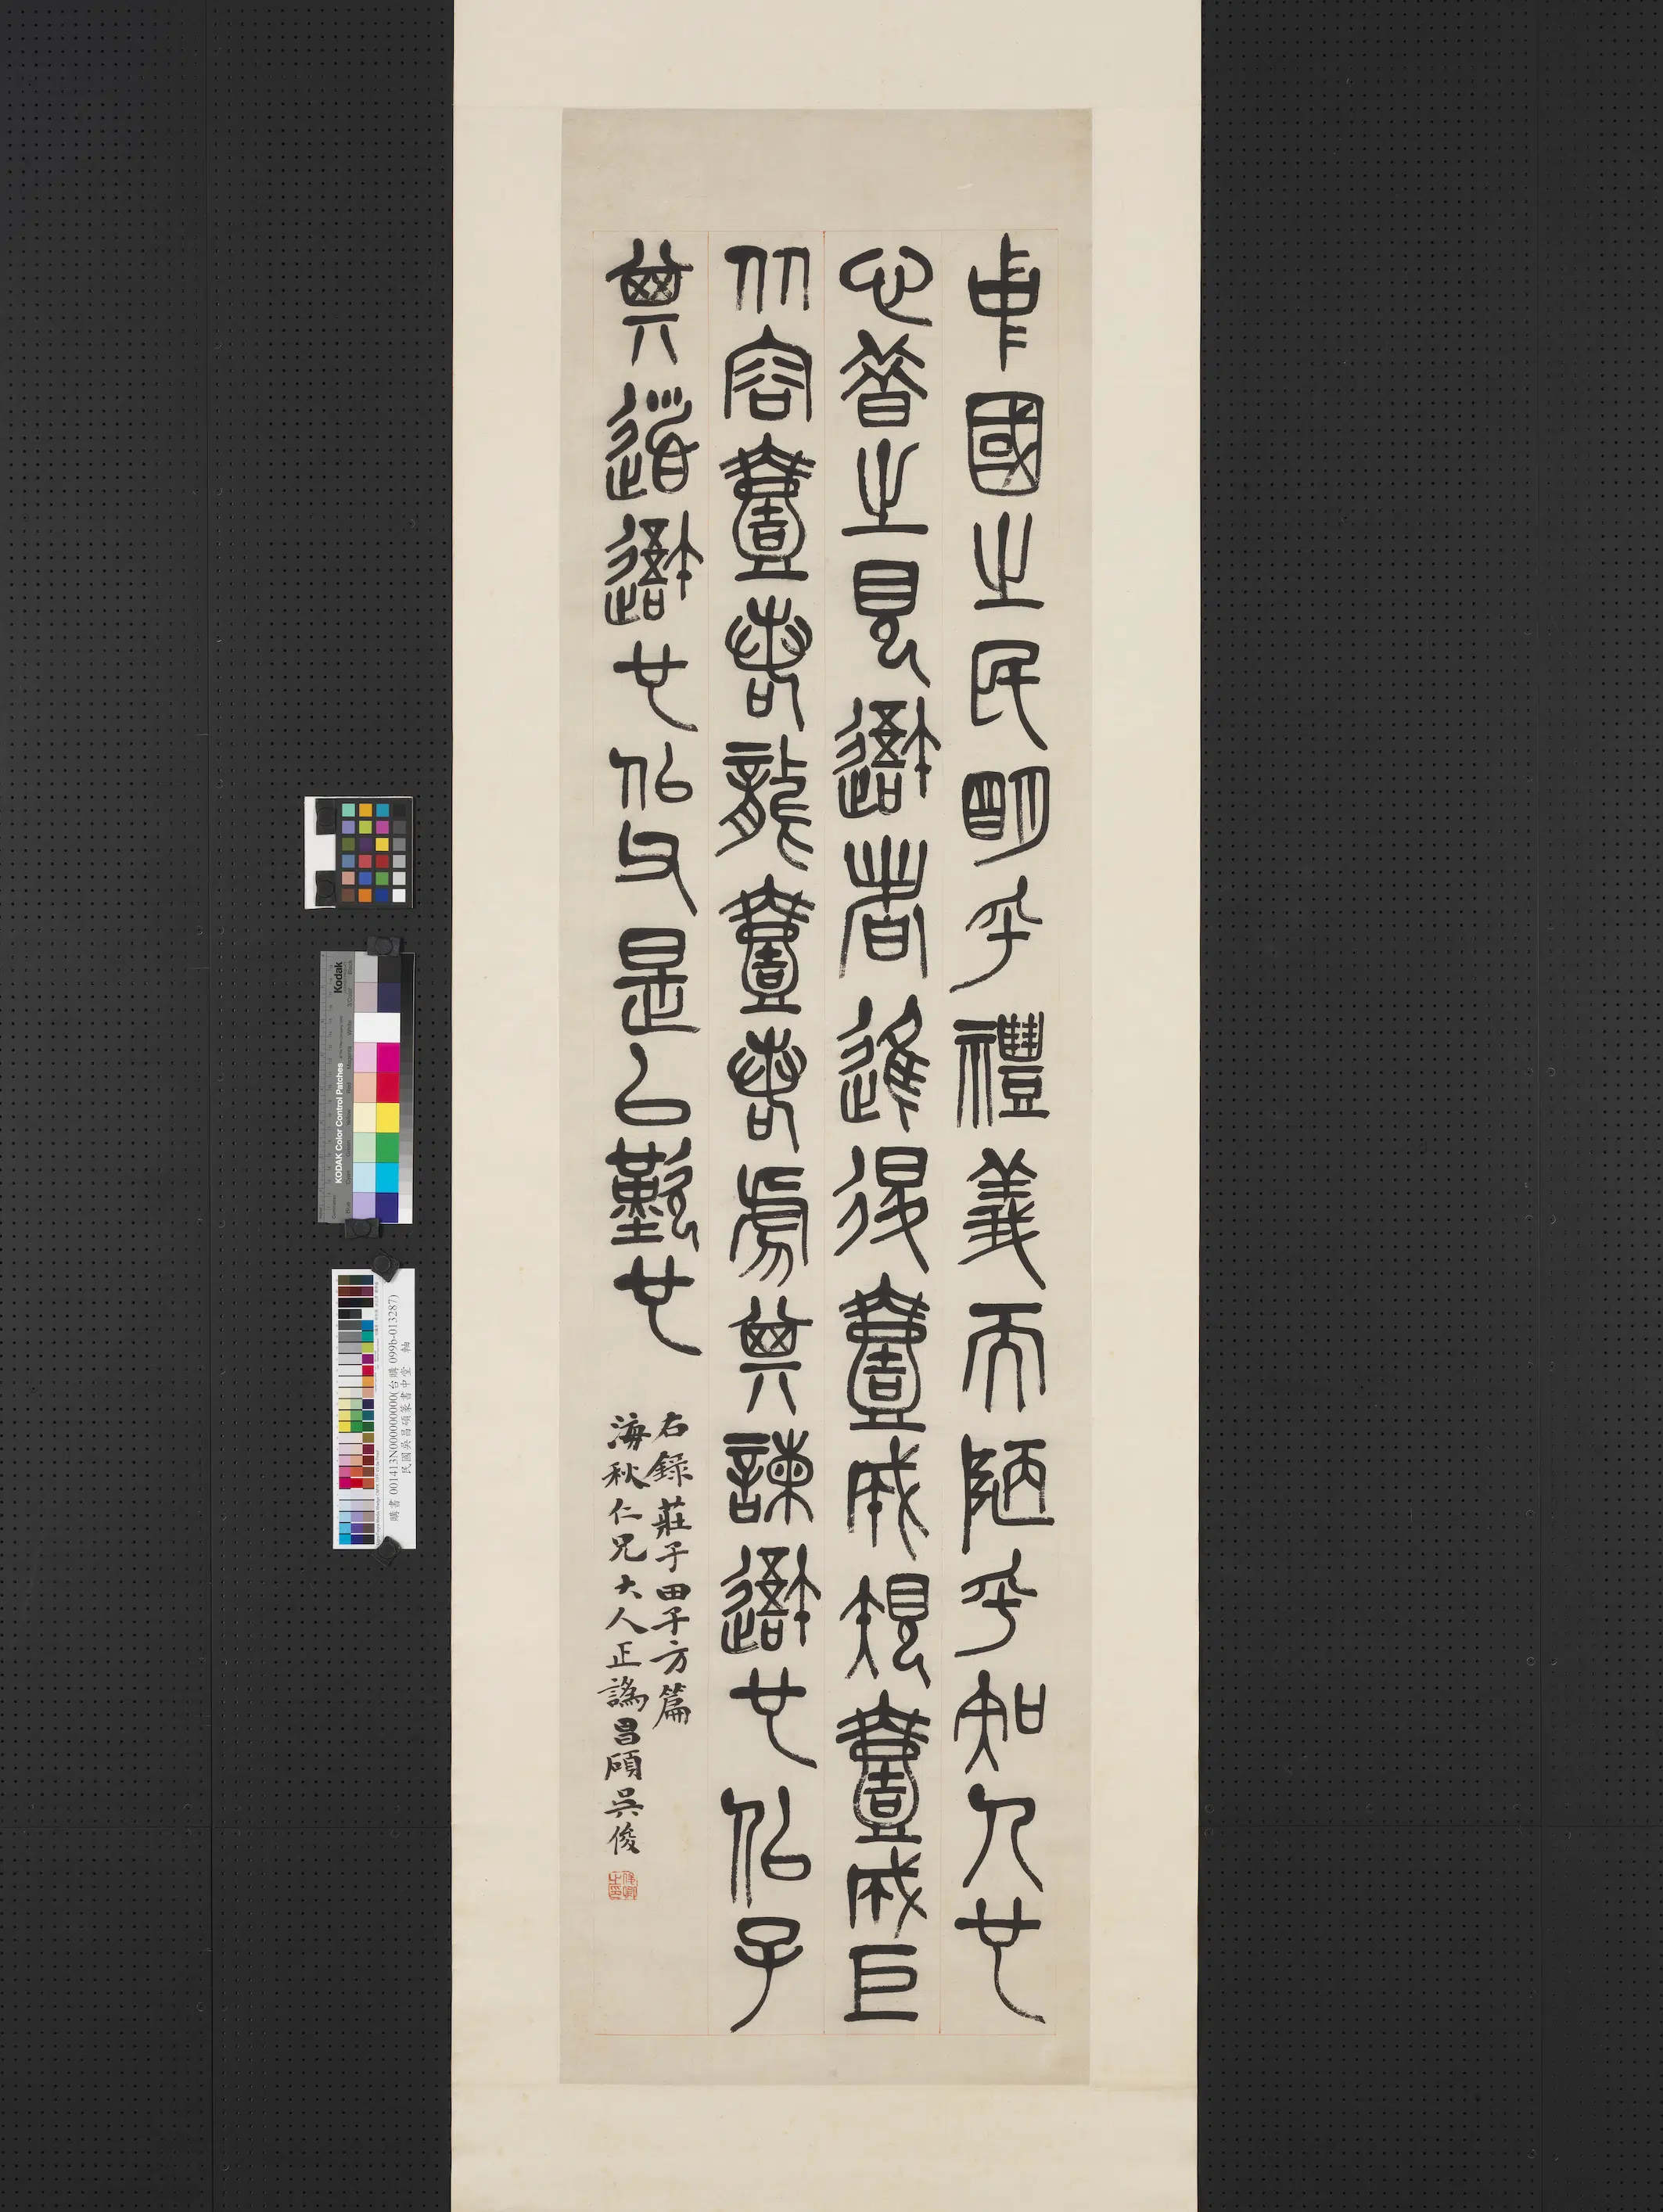 中國之民明乎禮義而陋乎知人也
心昔之見吾者進退壹成規壹成巨
从容壹若龍壹若虎其諫吾也似子
其道吾也似父是以歎也
右錄莊子田子方篇
海秋仁兄大人正譌昌碩吳俊
俊卿之印
Kodak
KODAK Color Control Patches
購書 001413N000000000(台購 099b-013287)
民國吳昌碩篆書中堂 軸